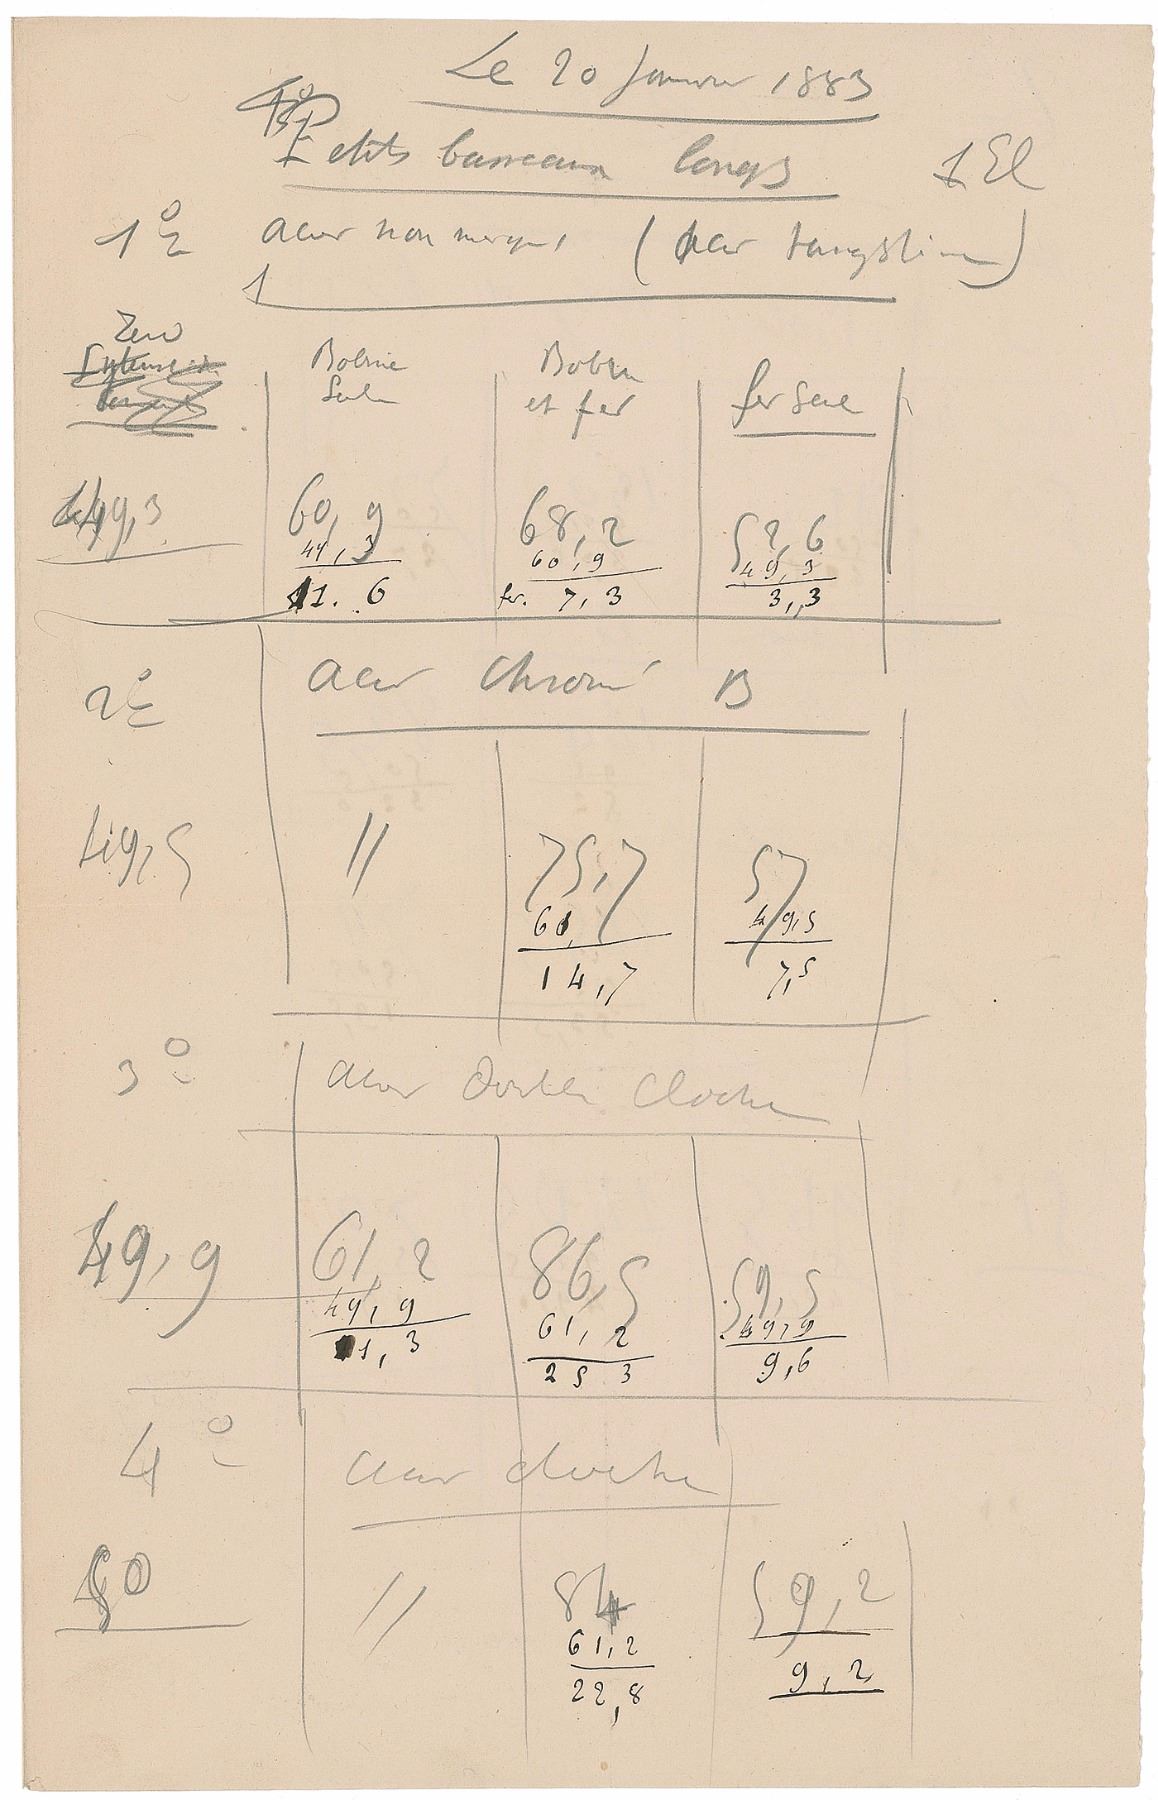 Le 20 Janvier 1883
Petits barreaux longs 1 El
1º acier non marqué (acier tungstène)
1
Zero Bobine Bobine fer seul
Seule et fer
49,3 60,9 68,2 52,6
49,3 60,9 49,3
11.6 fer. 7,3 3,3
2º acier chromé B
49,5 // 75,7 57
61, 49,5
14,7 7,5
3º acier double cloche
49,9 61,2 86,5 59,5
49,9 61,2 49,9
11,3 25 3 9,6
4º acier cloche
50 // 84 59,2
61,2
22,8 9,2